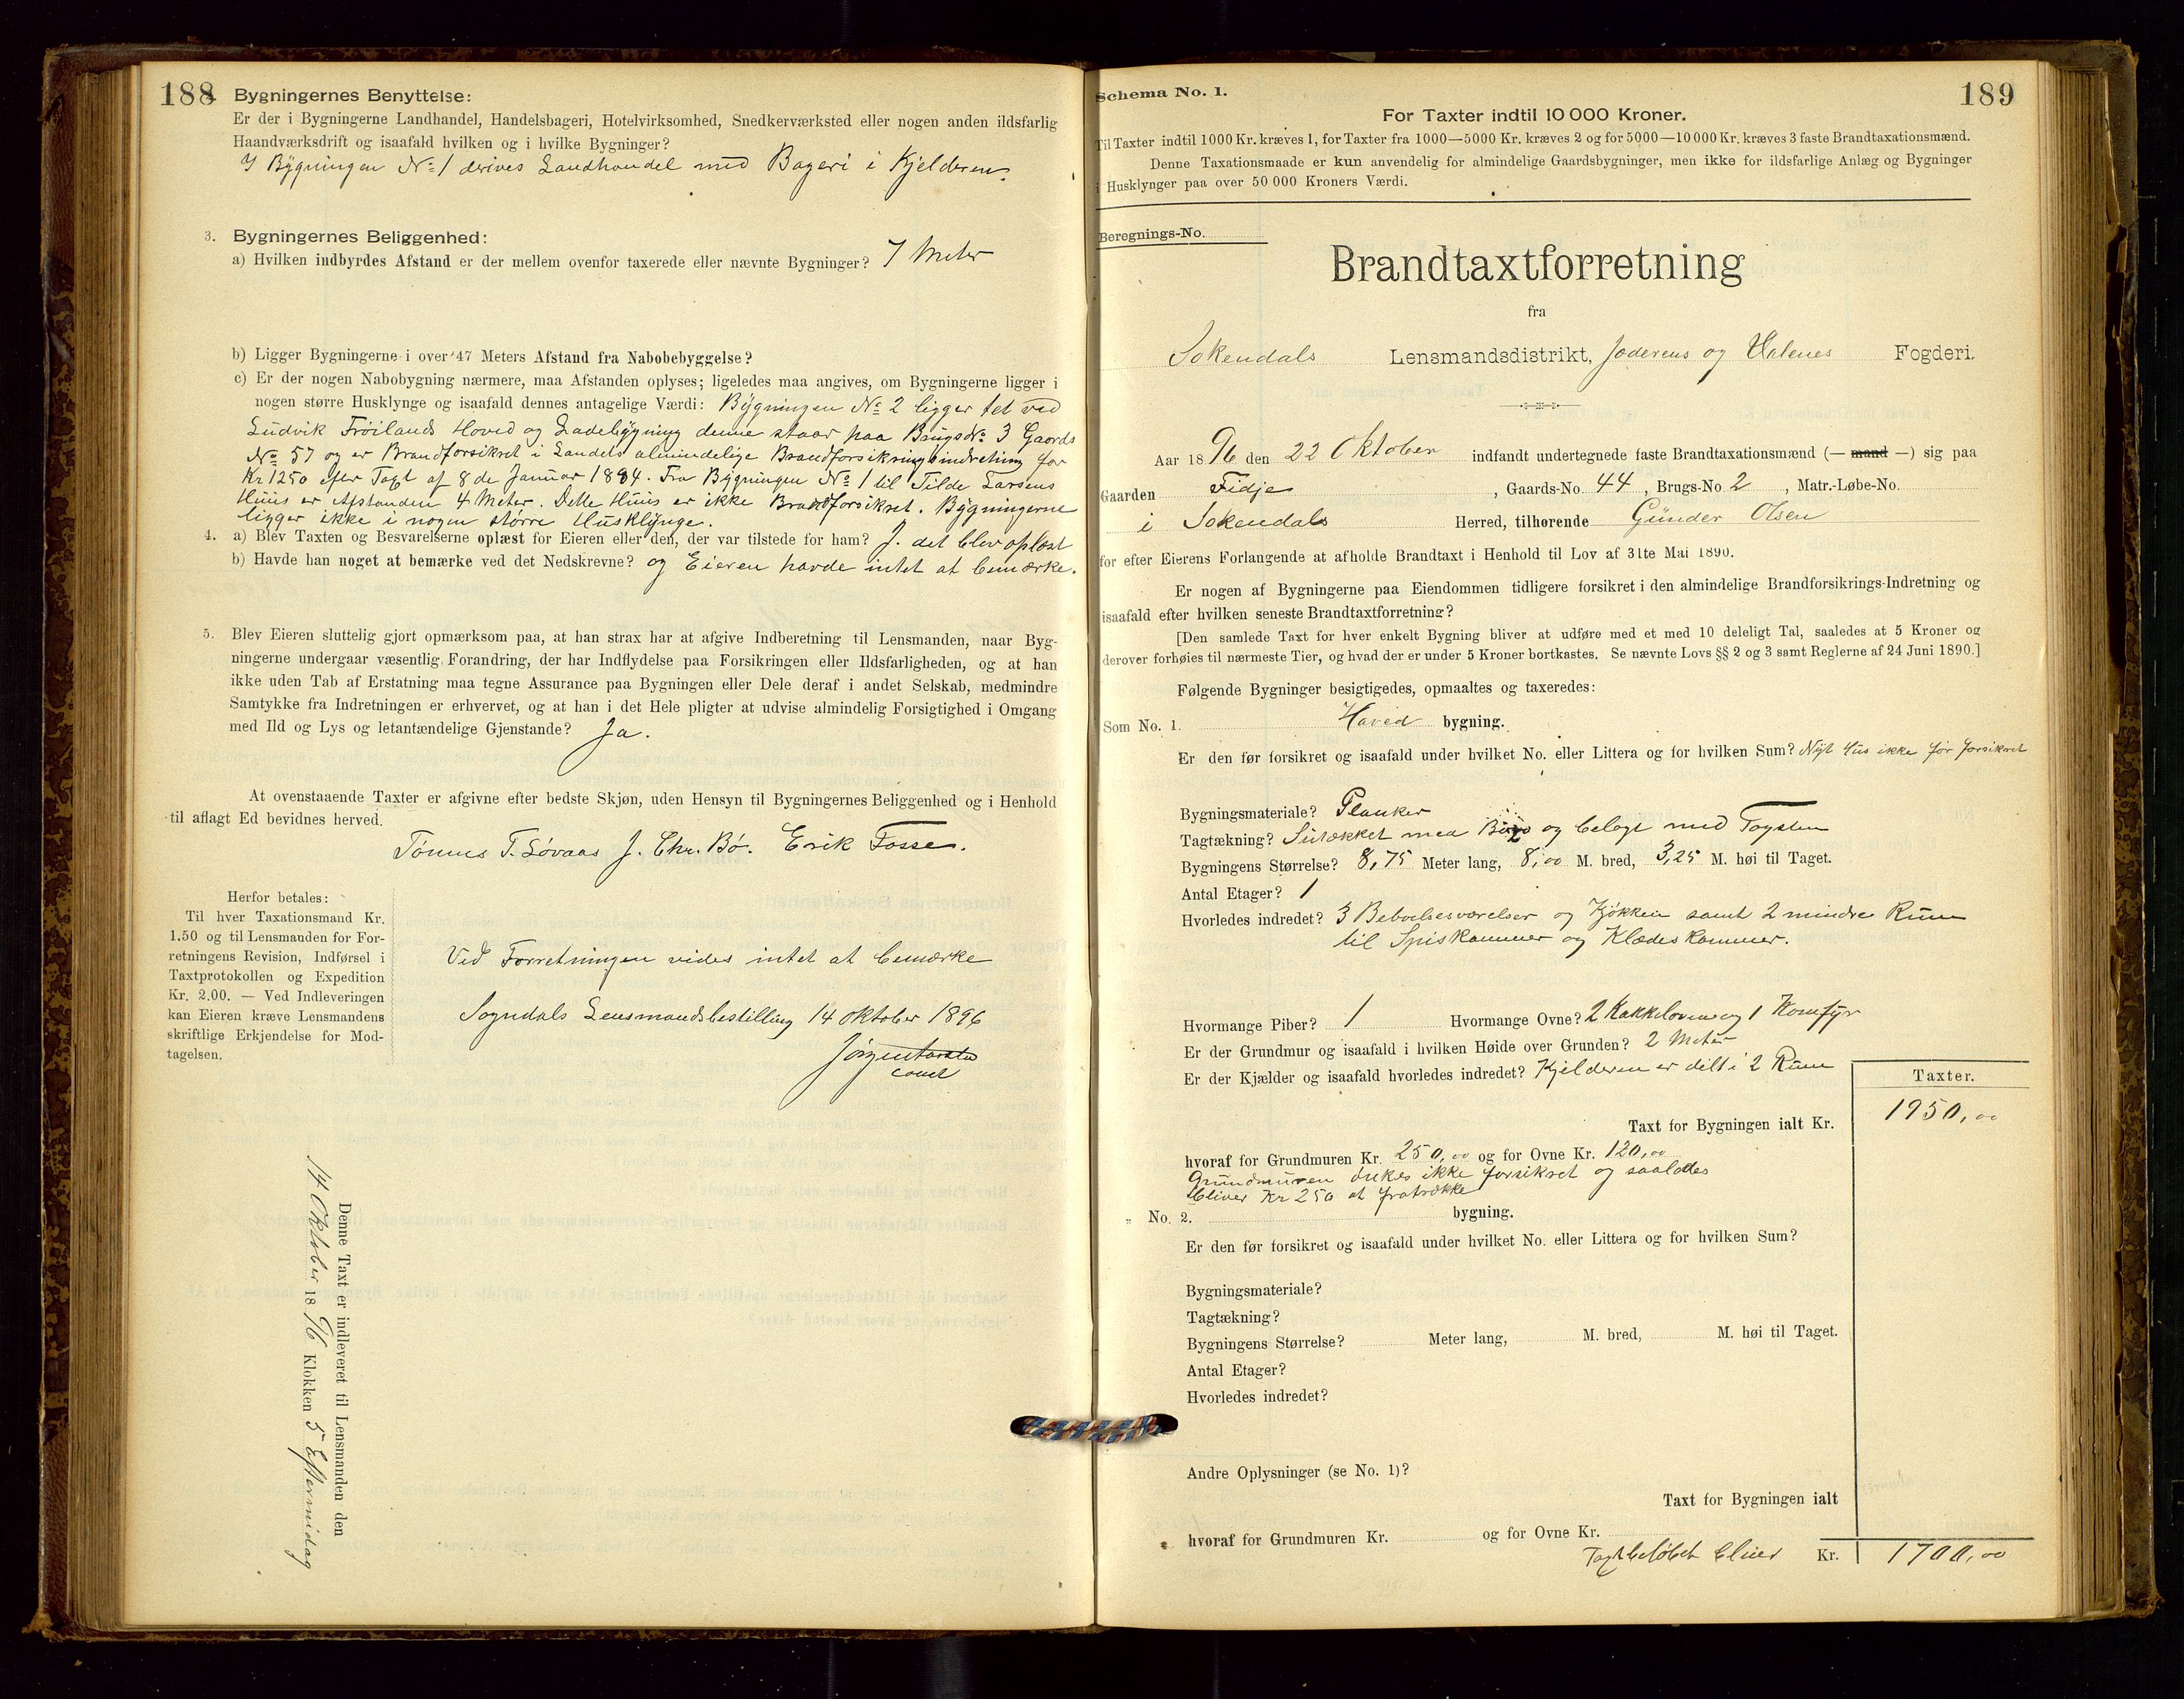 188
Bygningernes Benyttelse:
Er der i Bygningerne Landhandel, Handelsbageri, Hotelvirksomhed, Snedkerværksted eller nogen anden ildsfarlig
Haandværksdrift og isaafald hvilken og i hvilke Bygninger?
I Bygningen No 1 derives Landhandel med Bageri i Kjelderen.
3. Bygningernes Beliggenhed:
a) Hvilken indbyrdes Afstand er der mellem ovenfor taxerede eller nævnte Bygninger? 7 Meter
b) Ligger Bygningerne i over 47 Meters Afstand fra Nabobebyggelse?
c) Er der nogen Nabobygning nærmere, maa Afstanden oplyses; ligeledes maa angives, om Bygningerne ligger i
nogen større Husklynge og isaafald dennes antagelige Værdi: Bygningen No 2 ligger tet ved
Ludvik Frøilands Hoved og Ladebygning denne staar paa Brugs No 3 Gaards
No 57 og er Brandforsikret i Landets almindelige Brandforsikringsindretning for
Kr 1250 efter Taxt af 8de Januar 1884. Fra Bygningen No 1 til Tilde Larsens
Huus er Afstanden 4 Meter. Dette Huus er ikke Brandforsikret. Bygningerne
ligger ikke i nogen større Husklynge.
4. a) Blev Taxten og Besvarelserne oplæst for Eieren eller den, der var tilstede for ham? J. det blev oplæst
b) Havde han noget at bemærke ved det Nedskrevne? og Eieren havde intet at bemærke.
5. Blev Eieren sluttelig gjort opmærksom paa, at han strax har at afgive Indberetning til Lensmanden, naar Byg-
ningerne undergaar væsentlig Forandring, der har Indflydelse paa Forsikringen eller Ildsfarligheden, og at han
ikke uden Tab af Erstatning maa tegne Assurance paa Bygningen eller Dele deraf i andet Selskab, medmindre
Samtykke fra Indretningen er erhvervet, og at han i det Hele pligter at udvise almindelig Forsigtighed i Omgang
med Ild og Lys og letantændelige Gjenstande? Ja.
At ovenstaaende Taxter er afgivne efter bedste Skjøn, uden Hensyn til Bygningernes Beliggenhed og i Henhold
til aflagt Ed bevidnes herved.
Tønnes T. Løvaas J. Chr. Bø. Erik Fosse.
Herfor betales:
Til hver Taxationsmand Kr.
1.50 og til Lensmanden for For-
retningens Revision, Indførsel i
Taxtprotokollen og Expedition
Kr. 2.00. — Ved Indleveringen
kan Eieren kræve Lensmandens
skriftlige Erkjendelse for Mod-
tagelsen.
Ved Forretningen vides intet at bemærke
Sogndals Lensmandsbestilling 14 Oktober 1896
Denne Taxt er indleveret til Lensmanden den
14 Oktober 1896 Klokken 5 Eftermidag
Schema No. 1.
189
For Taxter indtil 10 000 Kroner.
Til Taxter indtil 1000 Kr. kræves 1, for Taxter fra 1000—5000 Kr. kræves 2 og for 5000—10 000 Kr. kræves 3 faste Brandtaxationsmænd.
Denne Taxationsmaade er kun anvendelig for almindelige Gaardsbygninger, men ikke for ildsfarlige Anlæg og Bygninger
i Husklynger paa over 50 000 Kroners Værdi.
Beregnings-No.
Brandtaxtforretning
fra
Sokendals Lensmandsdistrikt, Jæderens og Dalenes Fogderi.
Aar 1896 den 22 Oktober indfandt undertegnede faste Brandtaxationsmænd (— mand —) sig paa
Gaarden Fidje, Gaards-No. 44, Brugs-No. 2, Matr.-Løbe-No.
i Sokendals Herred, tilhørende Gunder Olsen
for efter Eierens Forlangende at afholde Brandtaxt i Henhold til Lov af 31te Mai 1890.
Er nogen af Bygningerne paa Eiendommen tidligere forsikret i den almindelige Brandforsikrings-Indretning og
isaafald efter hvilken seneste Brandtaxtforretning?
[Den samlede Taxt for hver enkelt Bygning bliver at udføre med et med 10 deleligt Tal, saaledes at 5 Kroner og
derover forhøies til nærmeste Tier, og hvad der er under 5 Kroner bortkastes. Se nævnte Lovs §§ 2 og 3 samt Reglerne af 24 Juni 1890.]
Følgende Bygninger besigtigedes, opmaaltes og taxeredes:
Som No. 1. Hoved bygning.
Er den før forsikret og isaafald under hvilket No. eller Littera og for hvilken Sum? Nyt Hus ikke før forsikret
Bygningsmateriale? Planker
Tagtækning? med og belagt med Tagsten
Bygningens Størrelse? 8,75 Meter lang, 8,00 M. bred, 3,25 M. høi til Taget.
Antal Etager? 1
Hvorledes indredet? 3 Beboelsesværelser og Kjøkken samt 2 mindre Rum
til Spiskammer og Klædeskammer.
Hvormange Piber? 1 Hvormange Ovne? 2 Kakkelovne og 1 Komfyr
Er der Grundmur og isaafald i hvilken Høide over Grunden? 2 Meter
Er der Kjælder og isaafald hvorledes indredet? Kjelderen er delt i 2 Rum
Taxter.
Taxt for Bygningen ialt Kr. 1950,00
hvoraf for Grundmuren Kr. 250,00 og for Ovne Kr. 120,00
Grundmuren ønkes ikke forsikret og saaledes
bliver Kr 250 at fratrække
„ No. 2. bygning.
Er den før forsikret og isaafald under hvilket No. eller Littera og for hvilken Sum?
Bygningsmateriale?
Tagtækning?
Bygningens Størrelse? Meter lang, M. bred, M. høi til Taget.
Antal Etager?
Hvorledes indredet?
Andre Oplysninger (se No. 1)?
Taxt for Bygningen ialt
hvoraf for Grundmuren Kr. og for Ovne Kr.
Taxtbeløbet bliver Kr. 1700,00